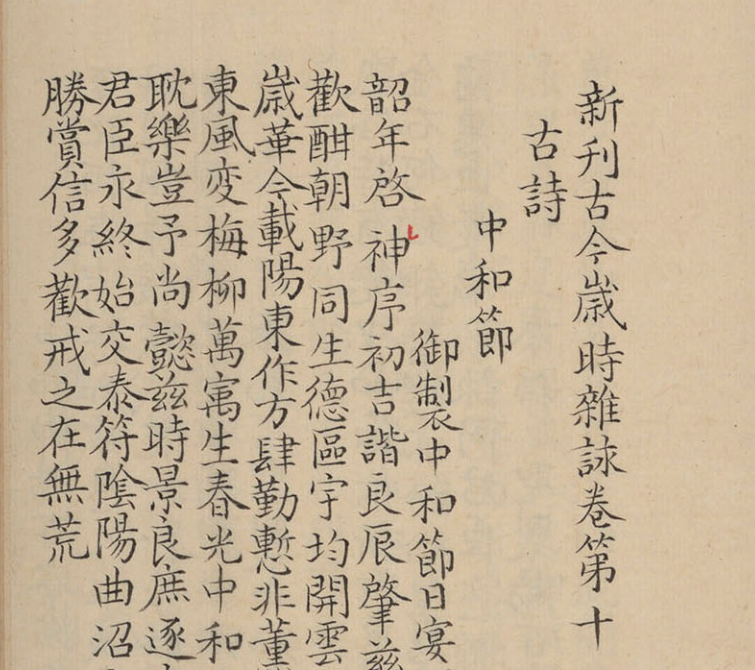 新刊古今嵗時雜詠卷第十
古詩
中和節
御製中和節日宴
韶年啓 神序初吉諧良辰肇兹
歡酣朝野同生德區宇均開雲
嵗華今載陽東作方肆勤慙非董
東風変梅柳萬寓生春光中和
耽樂豈予尚懿兹時景良庶逐
君臣永終始交泰符陰陽曲沼
勝賞信多歡戒之在無荒